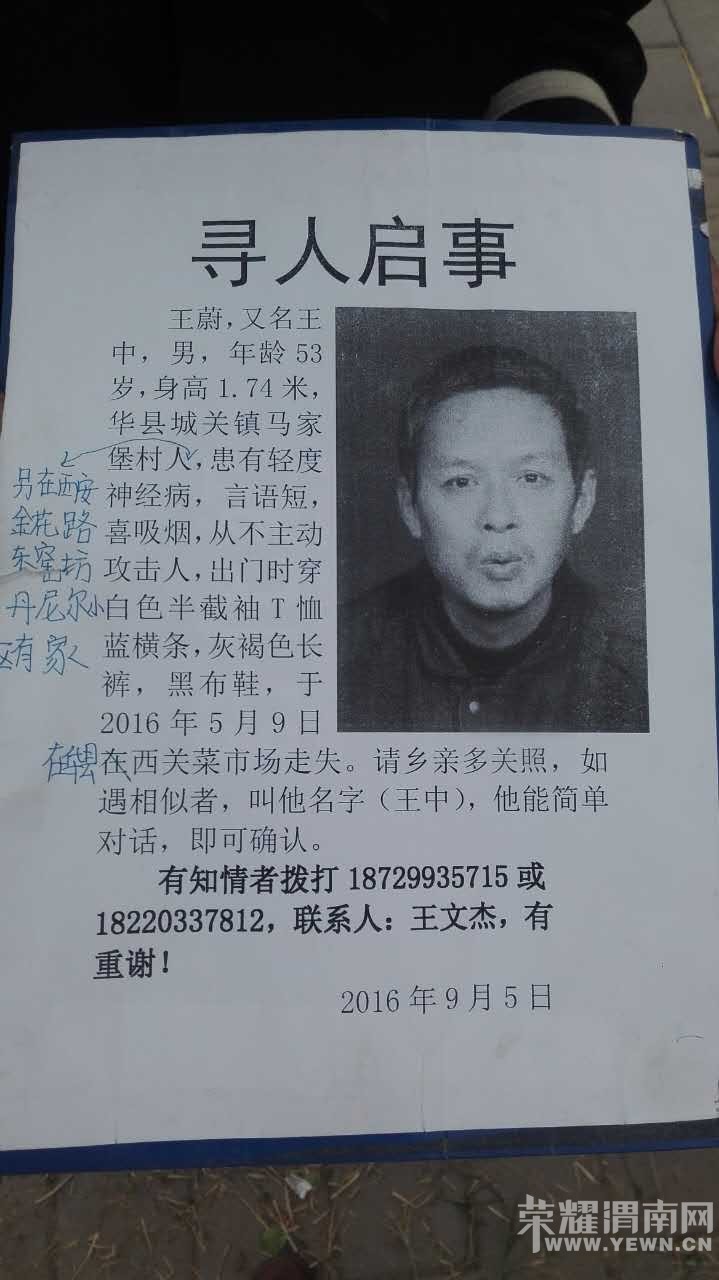 寻人启事
王蔚,又名王
中,男,年龄53
岁,身高1.74米,
华县城关镇马家
堡村人,患有轻度
神经病,言语短,
喜吸烟,从不主动
攻击人,出门时穿
白色半截袖T恤
蓝横条,灰褐色长
裤,黑布鞋,于
2016年5月9日
在西关菜市场走失。请乡亲多关照,如
遇相似者,叫他名字(王中),他能简单
对话,即可确认。
有知情者拨打18729935715或
18220337812,联系人:王文杰,有
重谢!
2016年9月5日
另在西安
金花路
东窑坊
丹尼尔小
区有家
在华县
荣耀渭南网
WWW.YEWN.CN